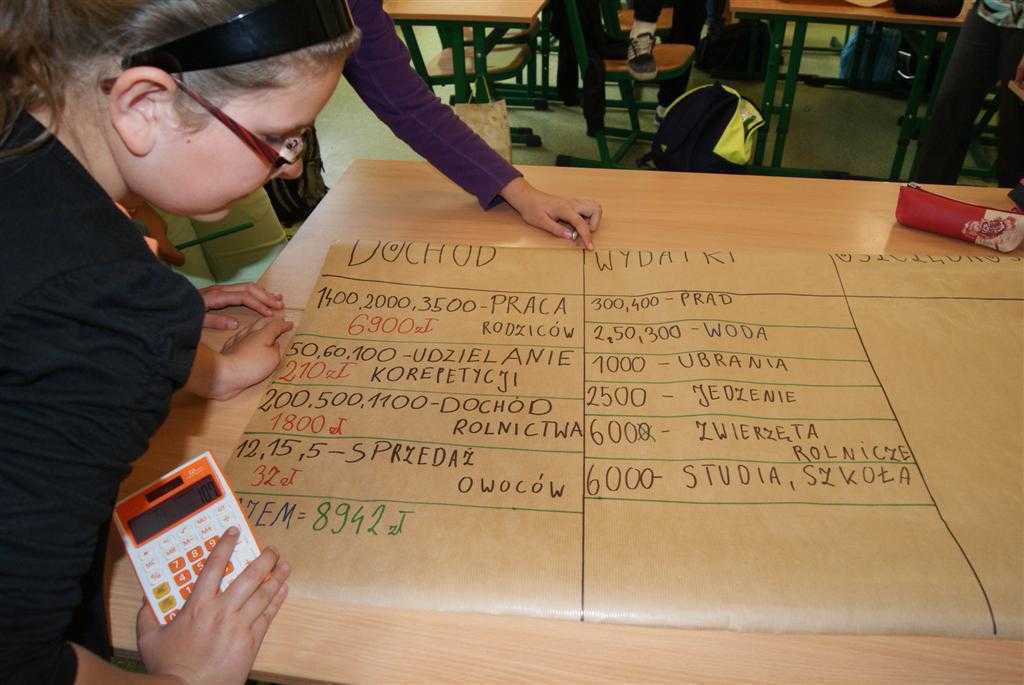 DOCHÓD
1400,2000,3500-PRACA
6900zł RODZICÓW
50,60,100-UDZIELANIE
210zł KOREPETYCJI
200,500,1100-DOCHÓD
1800zł ROLNICTWA
12,15,5-SPRZEDAŻ
32zł OWOCÓW
8942zł
WYDATKI
300,400-PRĄD
2,50,300-WODA
1000-UBRANIA
2500-JEDZENIE
6000-ZWIERZĘTA
ROLNICZE
6000-STUDIA, SZKOŁA